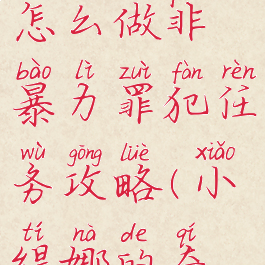 怎么做非
bào lì zuì fàn rèn
暴力罪犯任
wù gōng lüè xiǎo
务攻略(小
tí nà de qí
缇娜的奇